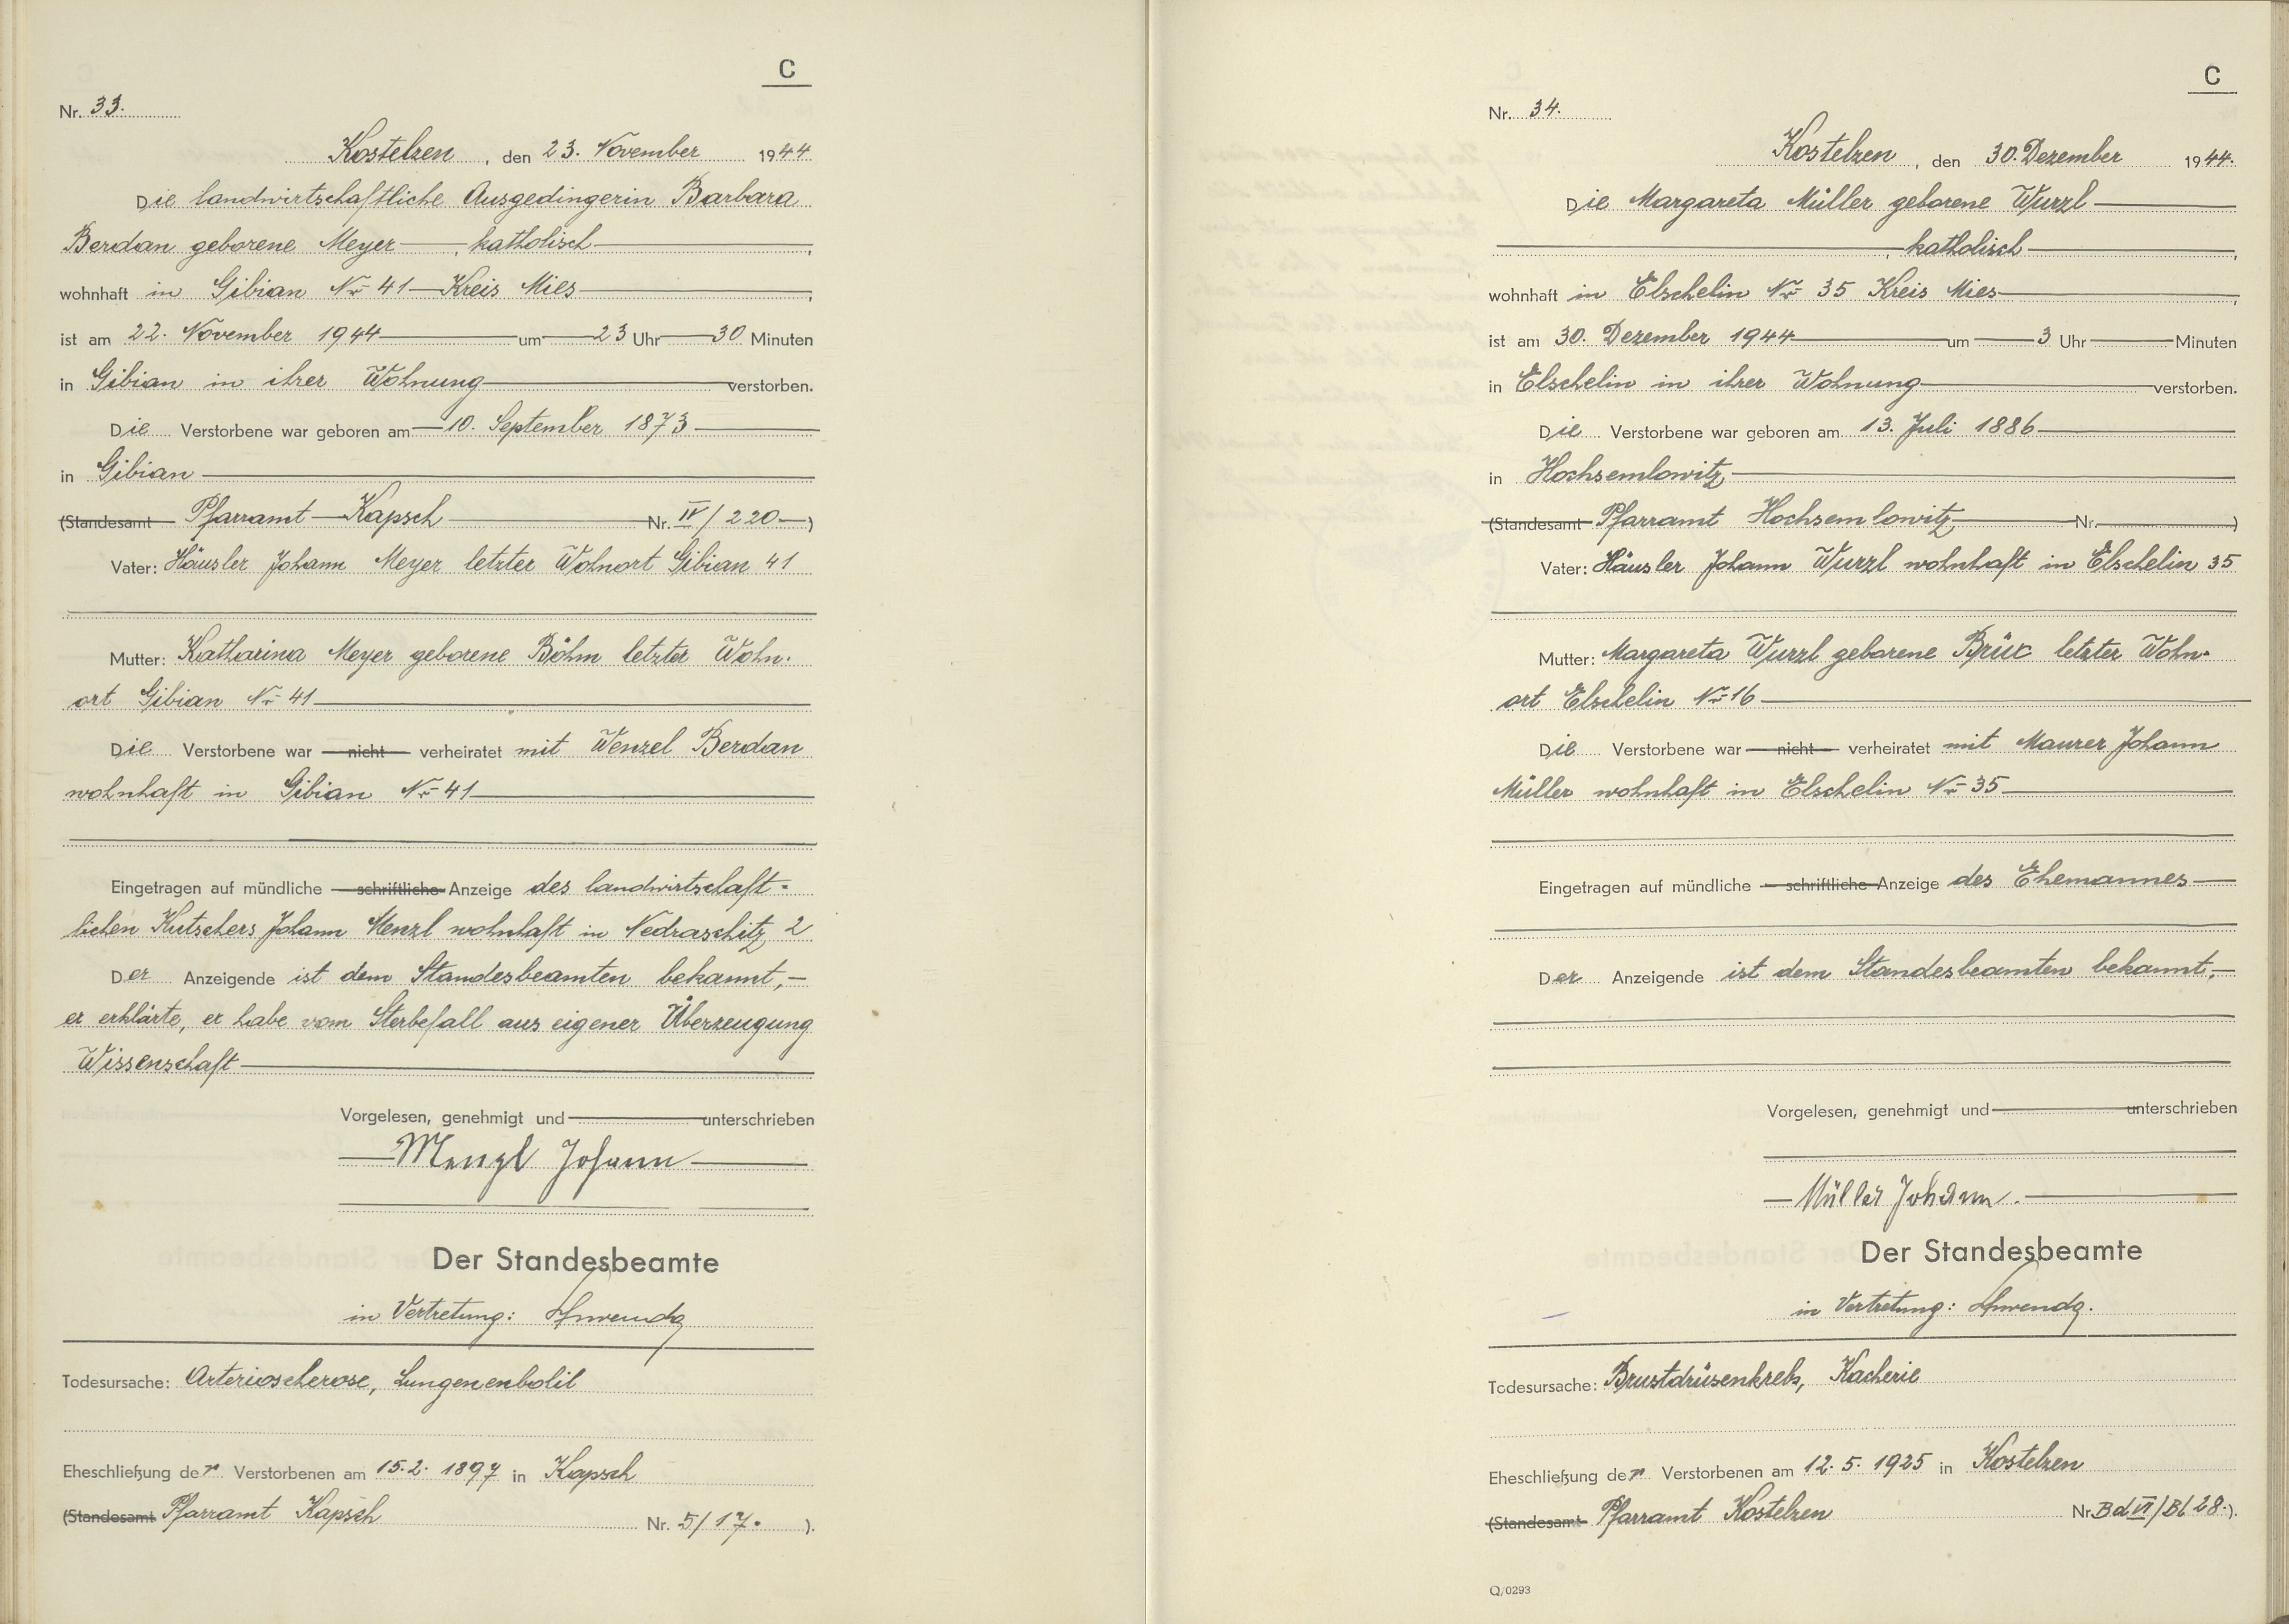 C
Nr. 33.
Kostelzen, den 23. November 1944
Die landwirtschaftliche Ausgedingerin Barbara
Berdan geborene Meyer, katholisch,
wohnhaft in Gibian Nr 41 Kreis Mies,
ist am 22. November 1944 um 23 Uhr 30 Minuten
in Gibian in ihrer Wohnung verstorben.
Die Verstorbene war geboren am 10. September 1873
in Gibian
(Standesamt Pfarramt Kapsch Nr. IV/220)
Vater: Häusler Johann Meyer letzter Wohnort Gibian 41
Mutter: Katharina Meyer geborene Böhm letzter Wohn-
ort Gibian Nr 41
Die Verstorbene war nicht verheiratet mit Wenzel Berdan
wohnhaft in Gibian Nr 41
Eingetragen auf mündliche schriftliche Anzeige des landwirtschaft-
lichen Kutschers Johann Menzl wohnhaft in Nedraschitz 2
Der Anzeigende ist dem Standesbeamten bekannt,
er erklärte, er habe vom Sterbefall aus eigener Überzeugung
Wissenschaft
Vorgelesen, genehmigt und unterschrieben
Menzl Johann
Der Standesbeamte
in Vertretung:
Todesursache: Arterioscherose, Lungenenbolil
Eheschließung der Verstorbenen am 15.2. 1897 in Kapsch
(Standesamt Pfarramt Kapsch Nr. 5/17.)
C
Nr. 34.
Kostelzen, den 30. Dezember 1944.
Die Margareta Müller geborene Wurzl
, katholisch,
wohnhaft in Elschelin Nr 35 Kreis Mies,
ist am 30. Dezember 1944 um 3 Uhr Minuten
in Elschelin in ihrer Wohnung verstorben.
Die Verstorbene war geboren am 13. Juli 1886
in Hochsemlowitz
(Standesamt Pfarramt Hochsemlowitz Nr. )
Vater: Häusler Johann Wurzl wohnhaft in Elschelin 35
Mutter: Margareta Wurzl geborene Brüx letzter Wohn-
ort Elschelin Nr 16
Die Verstorbene war nicht verheiratet mit Maurer Johann
Müller wohnhaft in Elschelin Nr 35
Eingetragen auf mündliche schriftliche Anzeige des Ehemannes
Der Anzeigende ist dem Standesbeamten bekannt,
Vorgelesen, genehmigt und unterschrieben
Müller Johann.
Der Standesbeamte
in Vertretung:
Todesursache: Brustdrüsenkrebs, Kacherie
Eheschließung der Verstorbenen am 12. 5. 1925 in Kostelzen
(Standesamt Pfarramt Kostelzen Nr. Bd VI/Bl 28.).
Q/0293